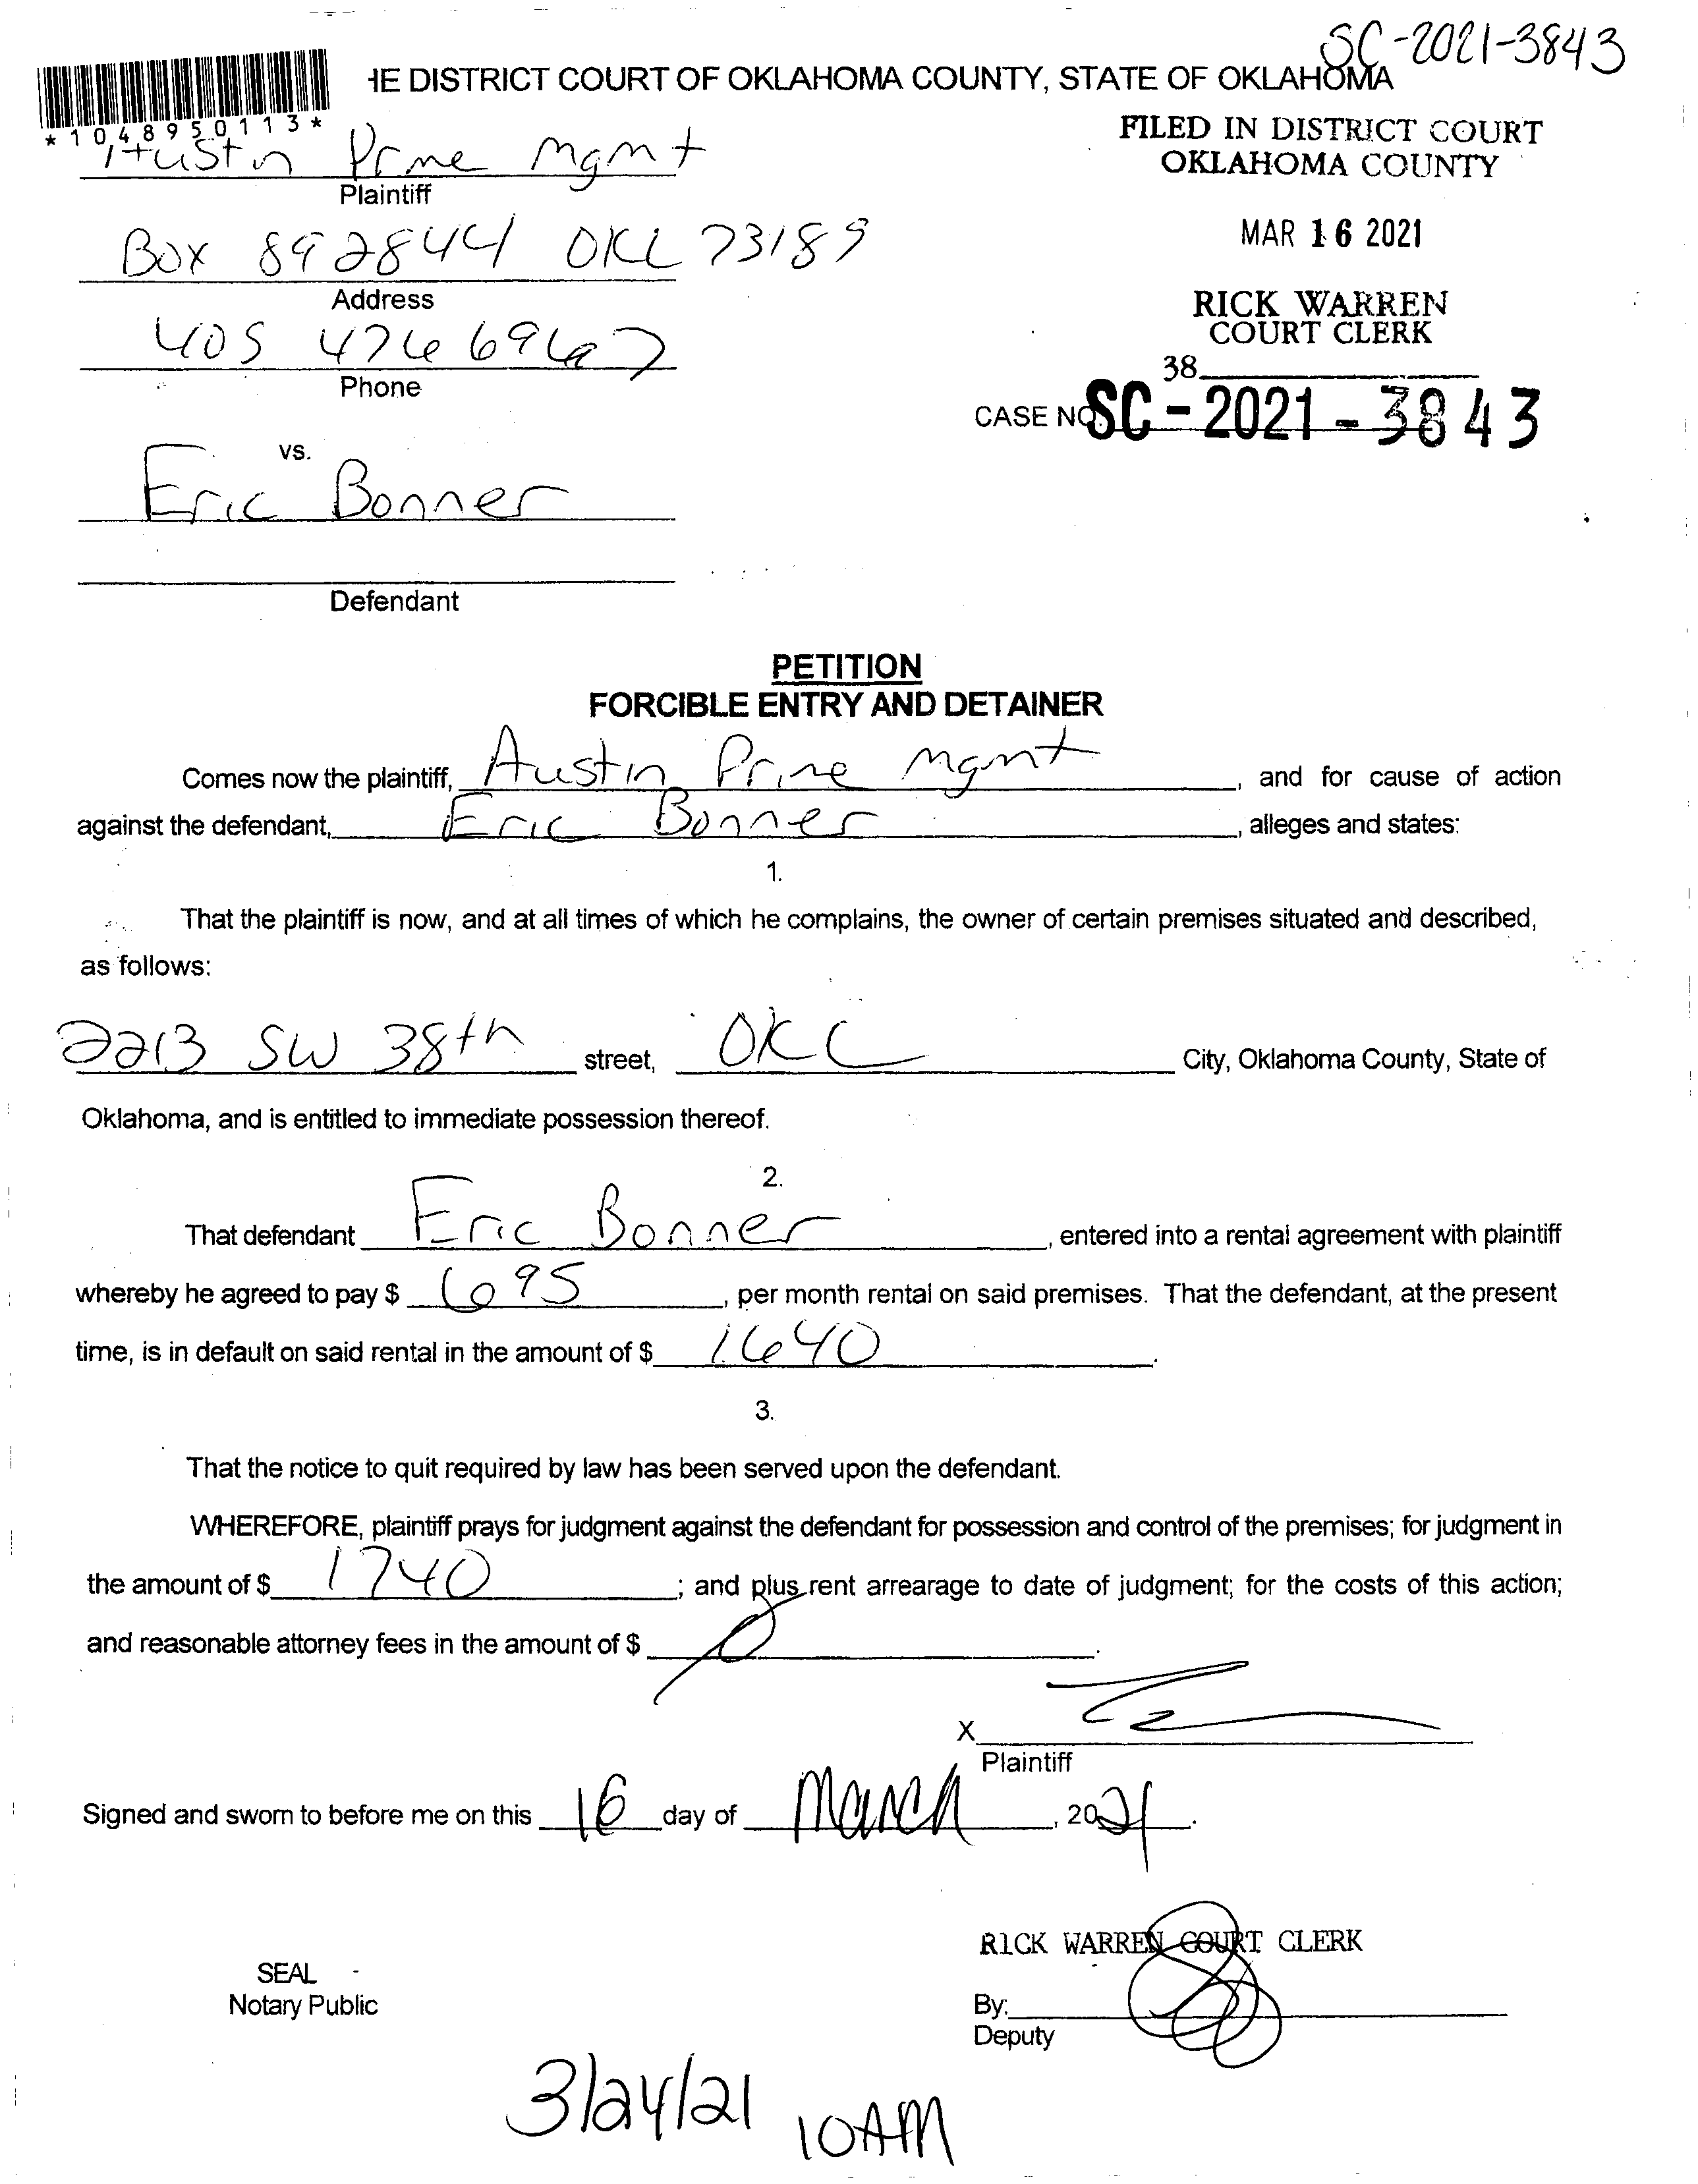 SC-2021-3843
HE DISTRICT COURT OF OKLAHOMA COUNTY, STATE OF OKLAHOMA
*1048950113*
FILED IN DISTRICT COURT
OKLAHOMA COUNTY
Austin Prime Mgmt
Plaintiff
MAR 16 2021
Box 892844 OKC 73189
Address
RICK WARREN
COURT CLERK
405 476 6967
Phone
38
CASE NO. SC-2021-3843
vs.
Eric Bonner
Defendant
PETITION
FORCIBLE ENTRY AND DETAINER
Comes now the plaintiff, Austin Prime Mgmt, and for cause of action
against the defendant, Eric Bonner, alleges and states:
1.
That the plaintiff is now, and at all times of which he complains, the owner of certain premises situated and described,
as follows:
2213 SW 38th street, OKC City, Oklahoma County, State of
Oklahoma, and is entitled to immediate possession thereof.
2.
That defendant Eric Bonner, entered into a rental agreement with plaintiff
whereby he agreed to pay $ 695, per month rental on said premises. That the defendant, at the present
time, is in default on said rental in the amount of $ 1640.
3.
That the notice to quit required by law has been served upon the defendant.
WHEREFORE, plaintiff prays for judgment against the defendant for possession and control of the premises; for judgment in
the amount of $ 1740; and plus rent arrearage to date of judgment; for the costs of this action;
and reasonable attorney fees in the amount of $ 0.
X
Plaintiff
Signed and sworn to before me on this 16 day of March, 2021.
RICK WARREN COURT CLERK
SEAL
Notary Public
By:
Deputy
3/24/21 10AM